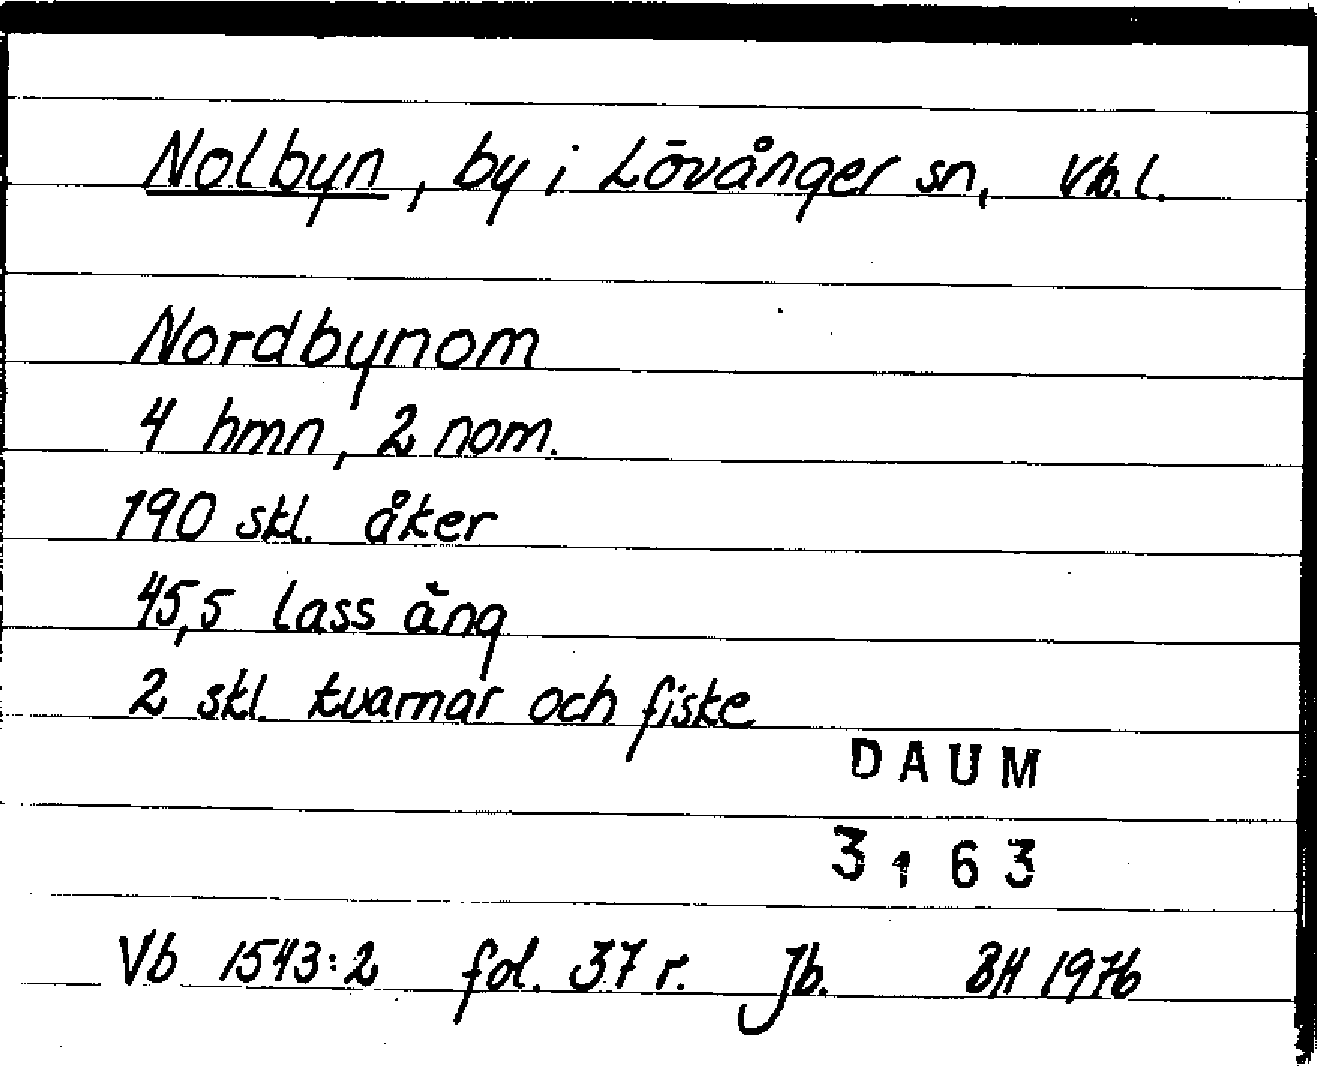 Nolbyn, by i Lövånger sn, Vb.l.
Nordbynom
4 hmn, 2 nom.
190 skl. åker
45,5 lass äng
2 skl. kvarnar och fiske
DAUM
3163
Vb 1543:2 fol. 37 r. Jb. BH 1976